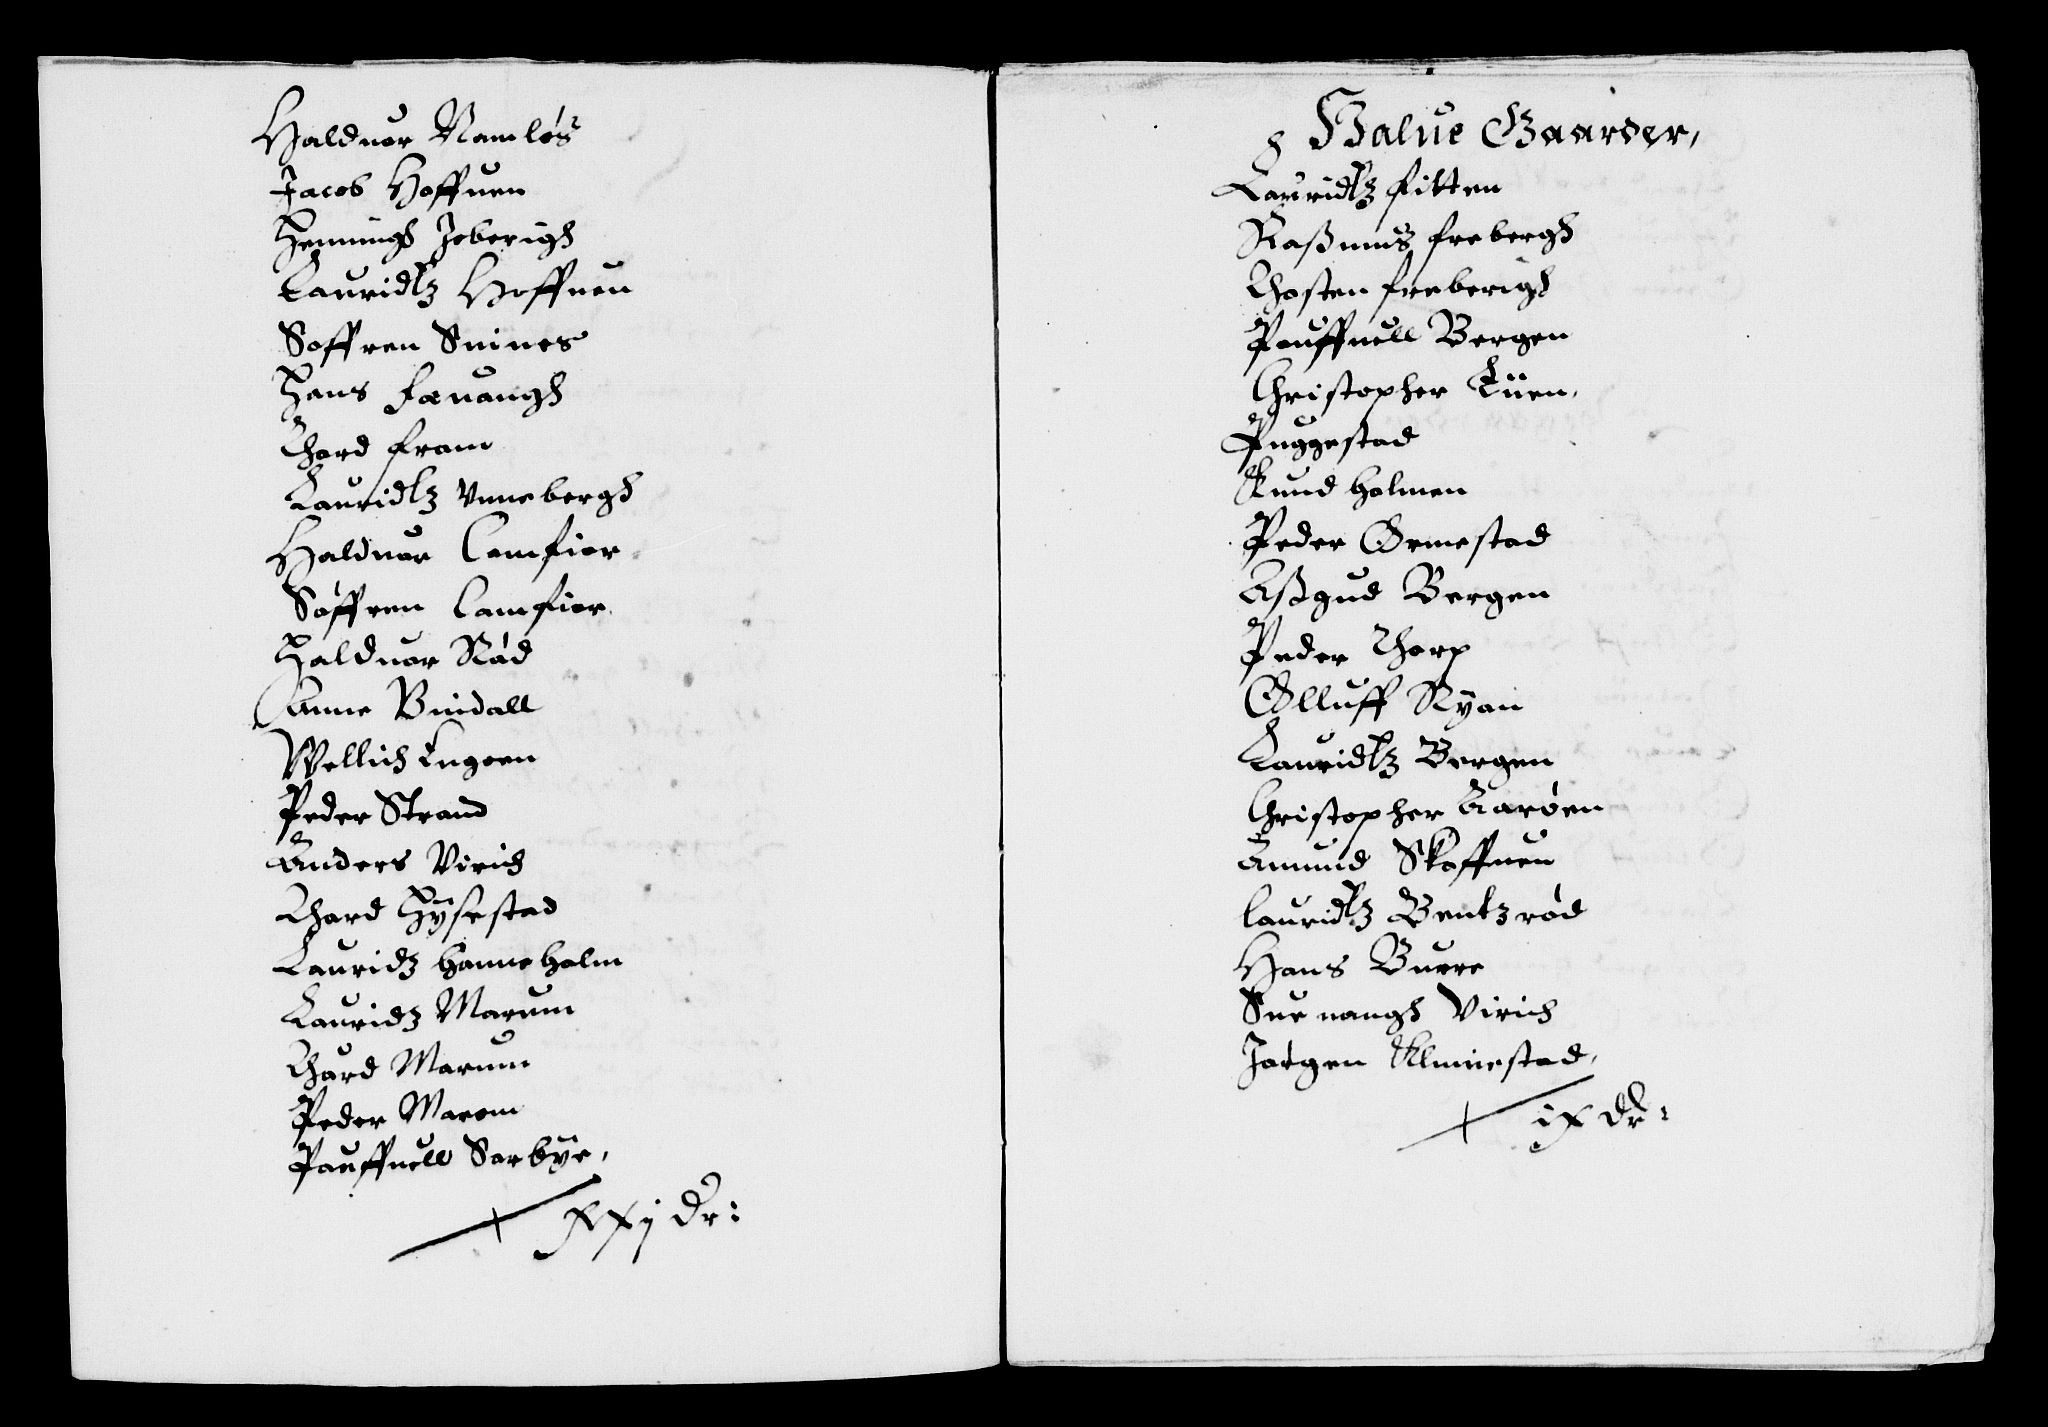 Halduor Namløs
Jacob Hoffuen
Henningh Joberigh
Lauridtz Hoffuen
Soffren Snines
Hans Fæuangh
Thord Fram
Lauridtz Vnnebergh
Halduor Camfior
Søffren Camfior
Halduor Rød
Anne Vindall
Wellich Engoen
Peder Strand
Anders Virich
Thord Hysestad
Lauridz Hanneholm
Lauridz Marum
Thord Marum
Peder Marom
Pouffuell Sorbye,
xxj dr:
Halue Gaarder,
Lauridtz Fitten
Raßmus Frebergh
Thosten Freberigh
Pouffuell Bergen
Christopher Tuen,
Puggestad
Knud Holmen
Peder Ormestad
Aßgud Bergen
Peder Thorp
Olluff Ryan
Lauridtz Bergen
Christopher Aarøen
Amund Skoffuen
Lauridtz Bentzrød
Hans Buere
Suenangh Virich
Jørgen Klinnestad,
ix dr: